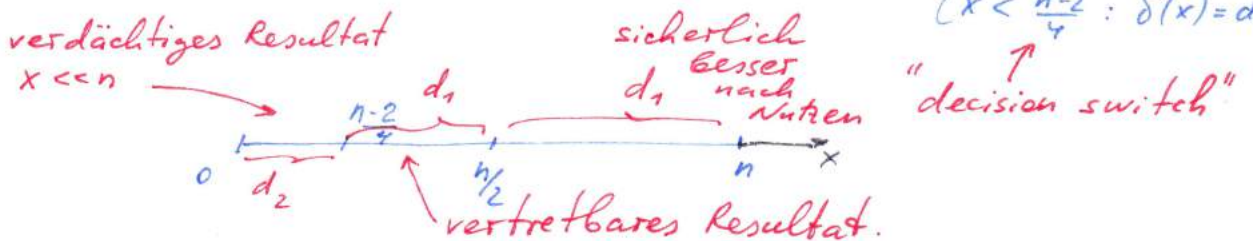 (x < n-2/4 : δ(x)=d
verdächtiges Resultat
x << n
sicherlich
besser
nach
Nutzen
"decision switch"
d₁
d₁
n-2/4
0
d₂
n/2
n
x
vertretbares Resultat.